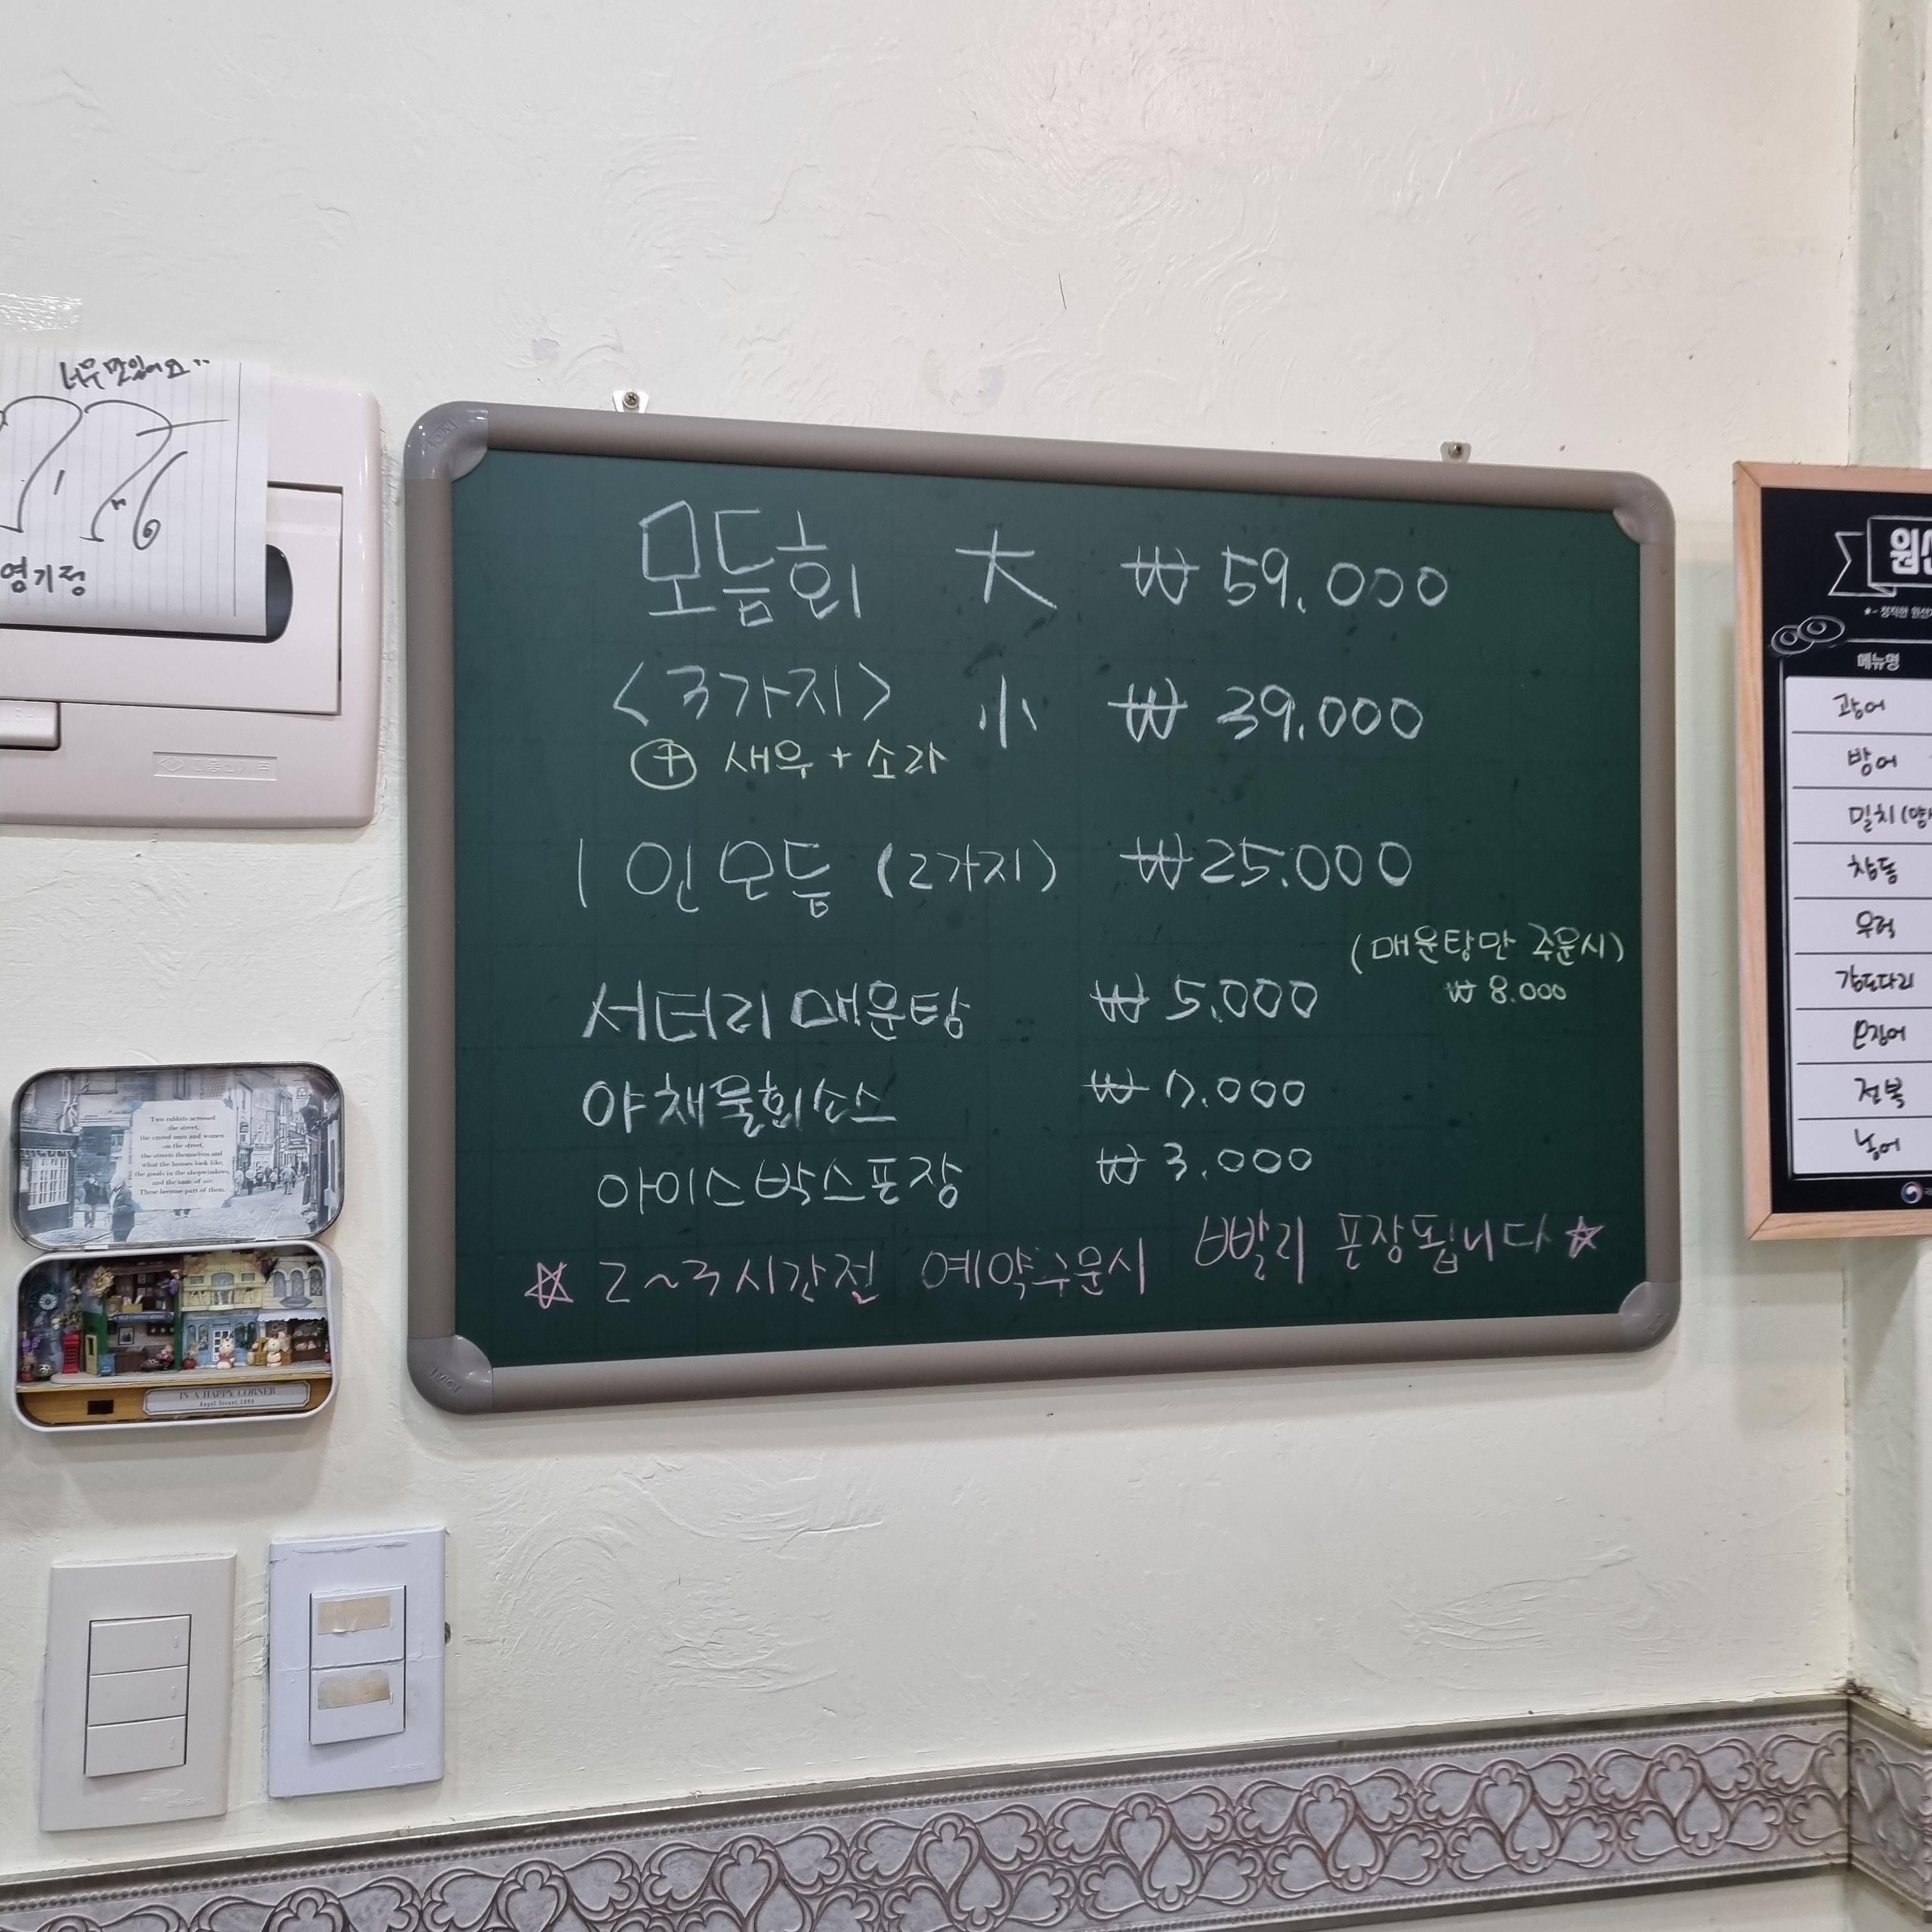 너무 맛있어요
모듬회 大 ₩ 59.000
<3가지> 小 ₩ 39.000
⊕ 새우 + 소라
1인모듬 (2가지) ₩25.000
(매운탕만 주문시)
₩ 8.000
서더리 매운탕 ₩ 5.000
야채물회소스 ₩ 7.000
아이스박스포장 ₩ 3.000
☆ 2~3시간전 예약주문시 빨리 포장됩니다 ☆
메뉴명
광어
방어
밀치
참돔
우럭
감도다리
전복
농어
Two rabbits across
the street,
the crowd man and women
on the street,
the streets themselves and
what the houses look like,
the goods in the shopwindows,
and the taste of air.
These become part of them.
IN A HAPPY CORNER